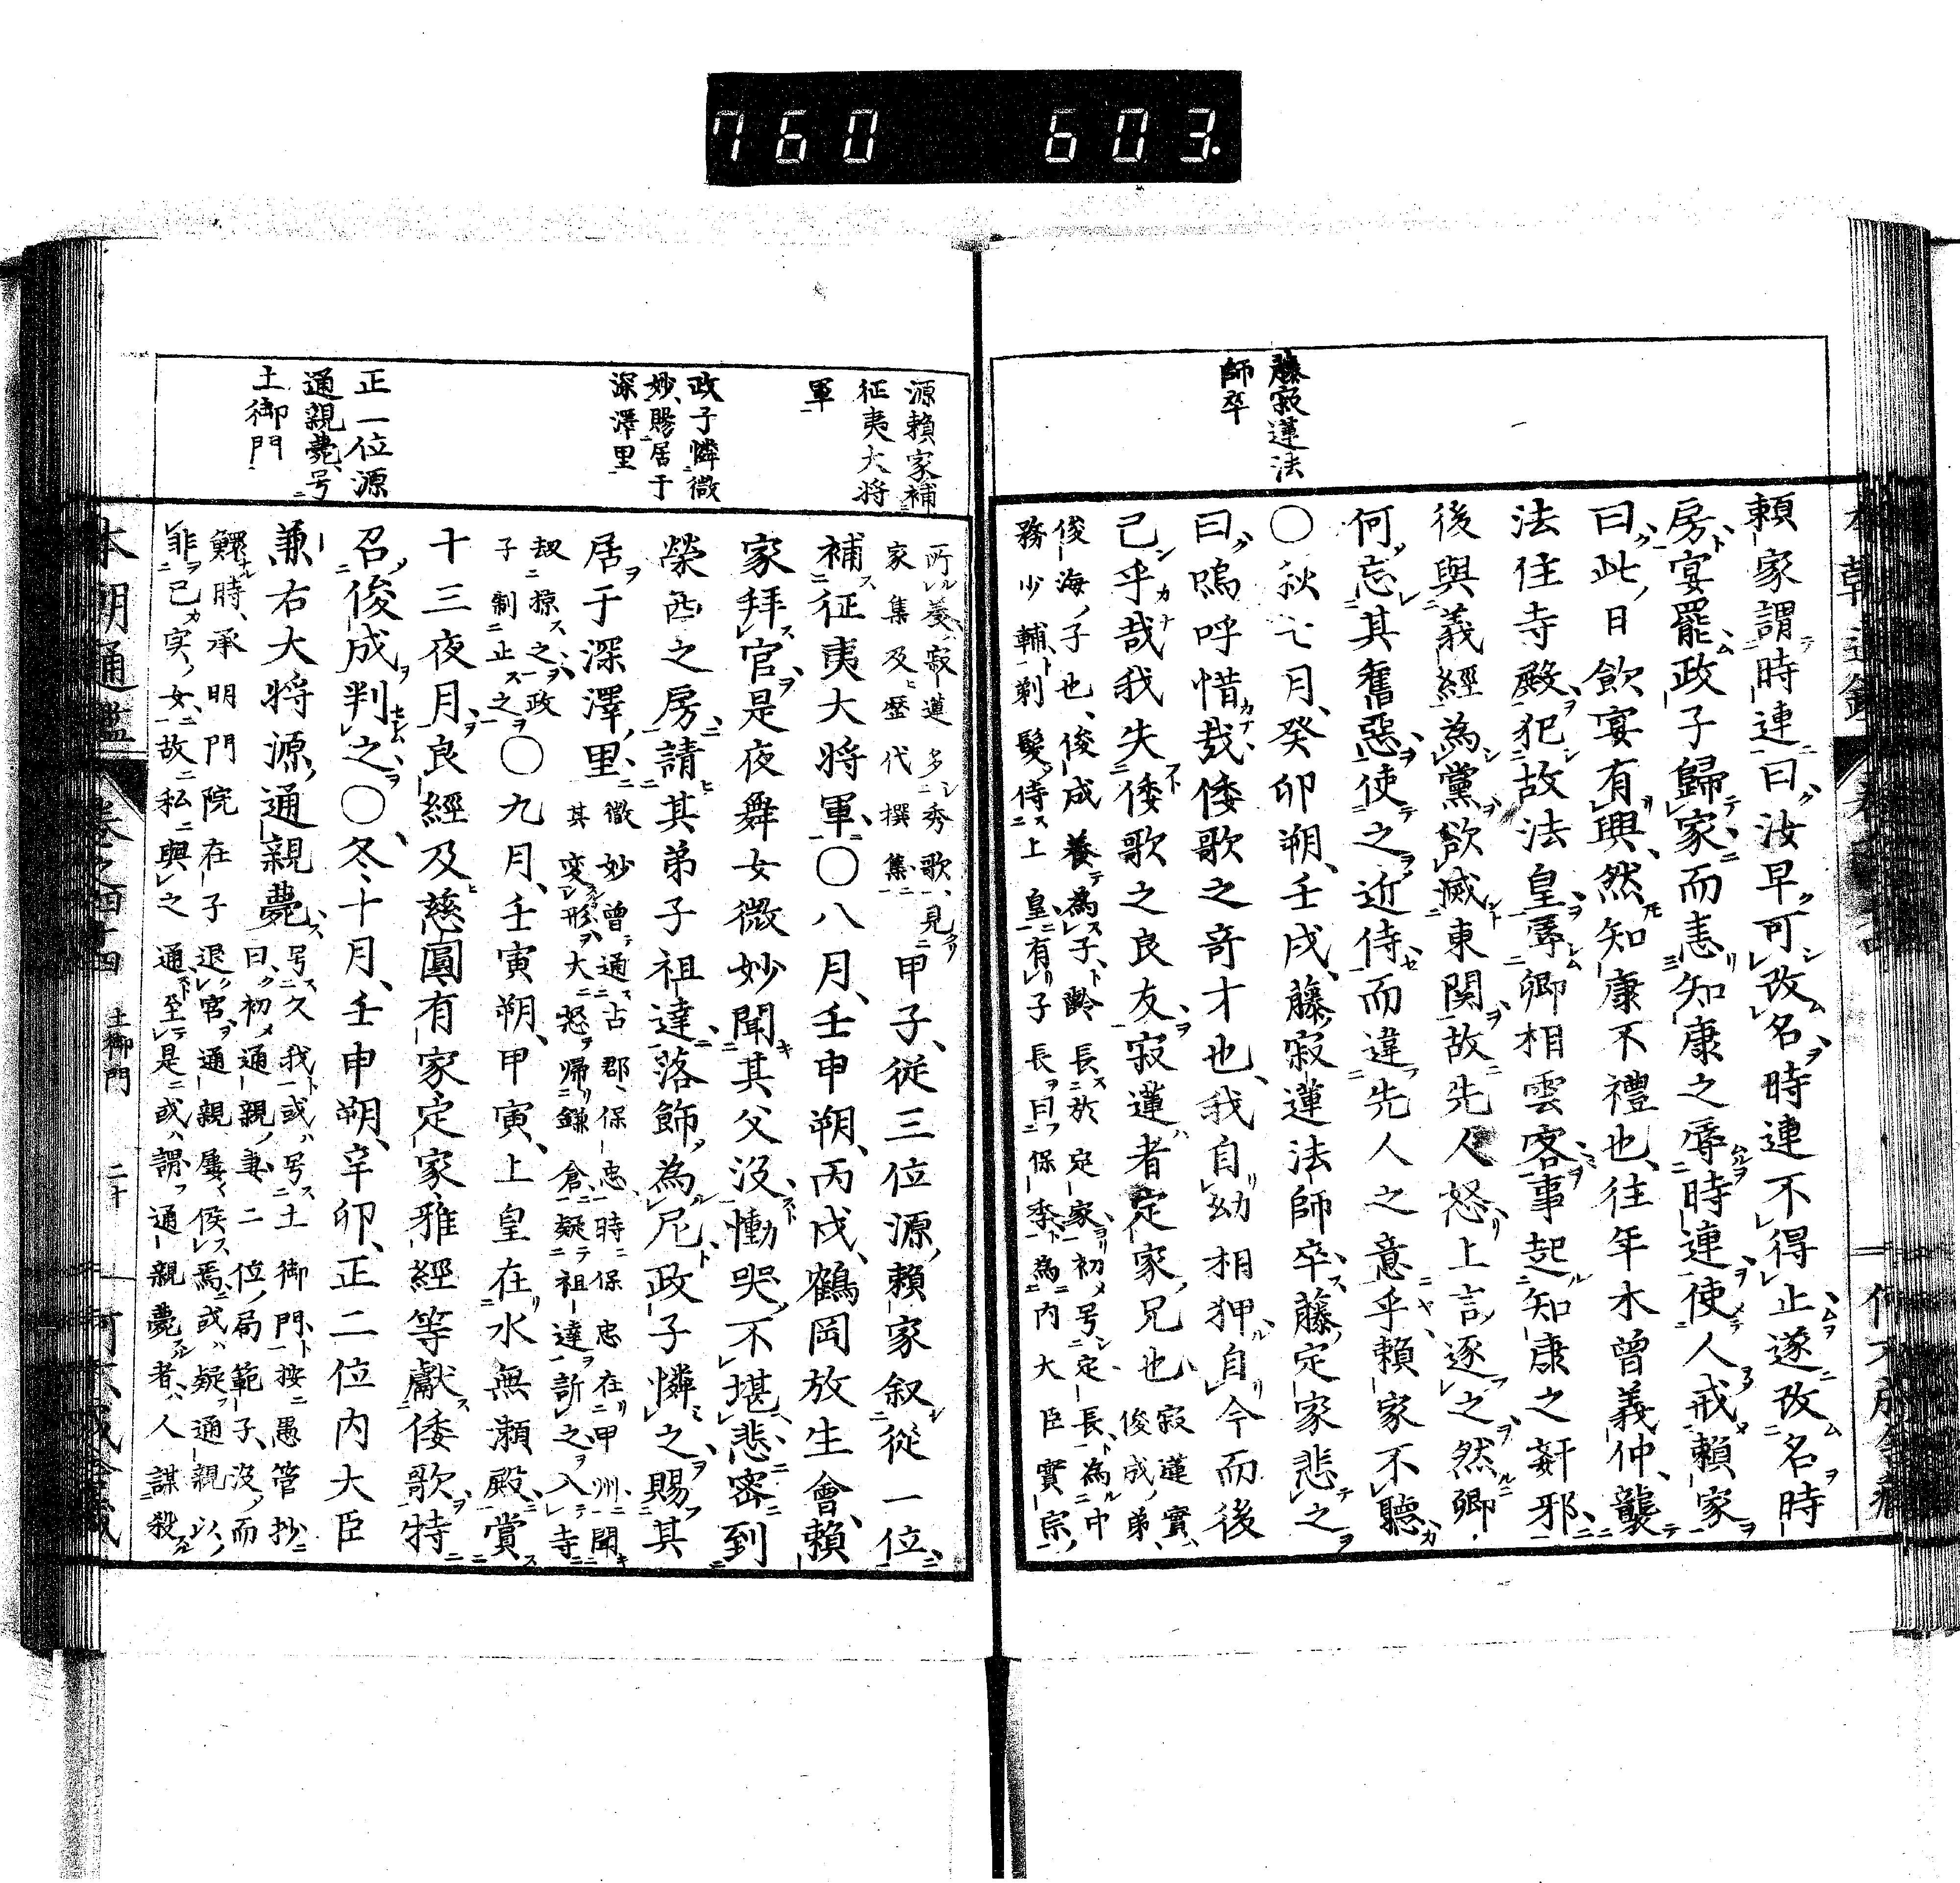 760 603.
藤寂蓮法
師卒
頼家謂時連曰汝早可改名時連不得止遂改名時
房宴罷政子歸家而恚知康之辱時連使人戒頼家
曰此日飲宴有興然知康不禮也往年木曾義仲襲
法住寺殿犯故法皇辱卿相雲客事起知康之姧邪
後與義經為黨欲滅東関故先人怒上言逐之然卿
何忘其舊惡使之近侍而違先人之意乎頼家不聽
○秋七月癸卯朔壬戌藤寂蓮法師卒藤定家悲之
曰嗚呼惜哉倭歌之奇才也我自幼相狎自今而後
已乎哉我失倭歌之良友寂蓮者定家兄也
寂蓮實
俊成弟
俊海子也俊成養為子齡長於定家初号定長為中
務少輔剃髮侍上皇有子長曰保季為内大臣實宗
源頼家補
征夷大将
軍
政子憐微
妙賜居于
深澤里
正一位源
通親薨号
土御門
所養寂蓮多秀歌見
家集及歷代撰集
甲子從三位源頼家叙從一位
補征夷大将軍○八月壬申朔丙戌鶴岡放生會頼
家拜官是夜舞女微妙聞其父没慟哭不堪悲密到
榮西之房請其弟子祖達落飾為尼政子憐之賜其
居于深澤里
微妙曾通古郡保忠時保忠在甲州聞
其変形大怒帰鎌倉疑祖達訴之入寺
刼掠之政
子制止之
○九月壬寅朔甲寅上皇在水無瀬殿賞
十三夜月良經及慈圓有家定家雅經等獻倭歌特
召俊成判之○冬十月壬申朔辛卯正二位内大臣
兼右大将源通親薨
号久我或号土御門按愚管抄
曰初通親妻二位局範子没而
鰥時承明門院在子退宮通親屢候焉或疑通親以
非己実女故私與之通至是或謂通親薨者人謀殺
本朝通鑑
卷之
四
土御門
二十